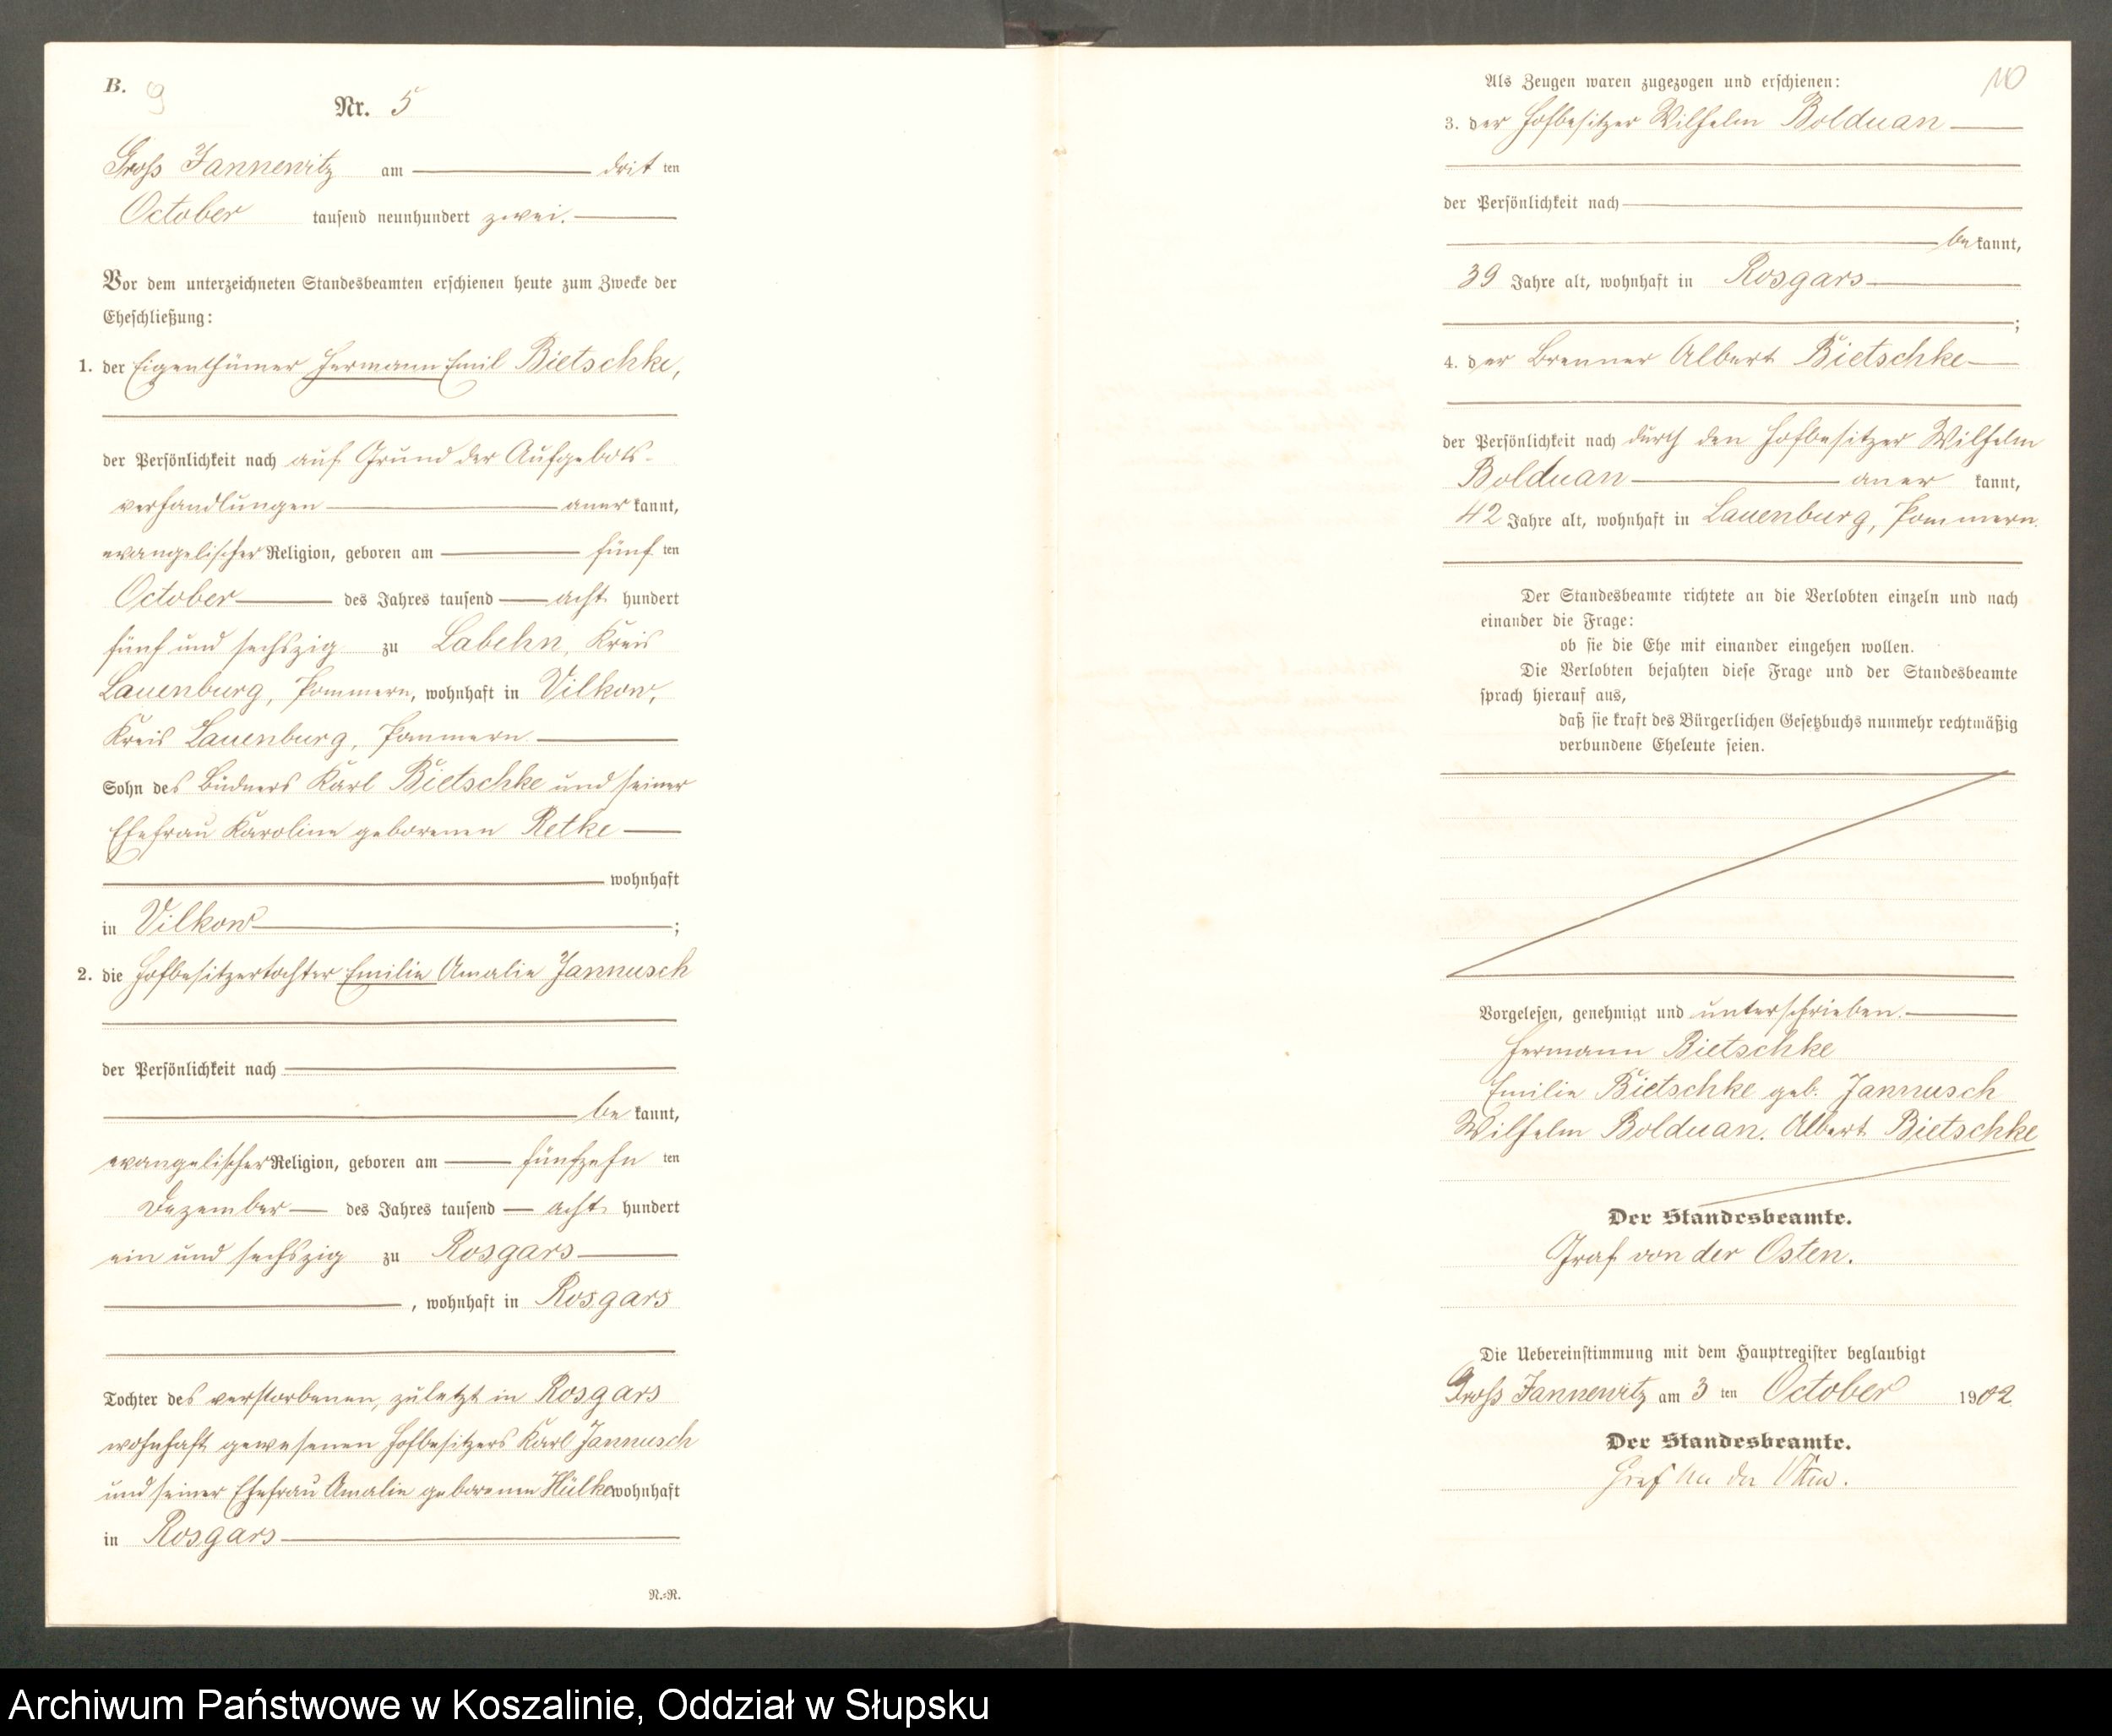 B. 9
Nr. 5
Gross Jannewitz am dritten
October tausend neunhundert zwei.
Vor dem unterzeichneten Standesbeamten erschienen heute zum Zwecke der
Eheschließung:
1. der Eigenthümer Hermann Emil Bietschke,
der Persönlichkeit nach auf Grund der Aufgebots-
verhandlungen anerkannt,
evangelischer Religion, geboren am fünften
October des Jahres tausend acht hundert
fünf und sechszig zu Labehn, Kreis
Lauenburg, Pommern, wohnhaft in Vilkow,
Kreis Lauenburg, Pommern
Sohn des Büdners Karl Bietschke und seiner
Ehefrau Karoline geborenen Retke
wohnhaft
in Vilkow ;
2. die Hofbesitzertochter Emilie Amalie Jannusch
der Persönlichkeit nach
bekannt,
evangelischer Religion, geboren am fünfzehnten
Dezember des Jahres tausend acht hundert
ein und sechszig zu Rosgars
, wohnhaft in Rosgars
Tochter des verstorbenen, zuletzt in Rosgars
wohnhaft gewesenen Hofbesitzers Karl Jannusch
und seiner Ehefrau Amalie geborenen Hülke wohnhaft
in Rosgars
N.=N.
10
Als Zeugen waren zugezogen und erschienen:
3. der Hofbesitzer Wilhelm Bolduan
der Persönlichkeit nach
bekannt,
39 Jahre alt, wohnhaft in Rosgars
;
4. der Brenner Albert Bietschke
der Persönlichkeit nach durch den Hofbesitzer Wilhelm
Bolduan anerkannt,
42 Jahre alt, wohnhaft in Lauenburg, Pommern.
Der Standesbeamte richtete an die Verlobten einzeln und nach
einander die Frage:
ob sie die Ehe mit einander eingehen wollen.
Die Verlobten bejahten diese Frage und der Standesbeamte
sprach hierauf aus,
daß sie kraft des Bürgerlichen Gesetzbuchs nunmehr rechtmäßig
verbundene Eheleute seien.
Vorgelesen, genehmigt und unterschrieben.
Hermann Bietschke
Emilie Bietschke geb. Jannusch
Wilhelm Bolduan. Albert Bietschke
Der Standesbeamte.
Graf von der Osten.
Die Uebereinstimmung mit dem Hauptregister beglaubigt
Gross Jannewitz am 3 ten October 1902
Der Standesbeamte.
Graf von der Osten.
Archiwum Państwowe w Koszalinie, Oddział w Słupsku